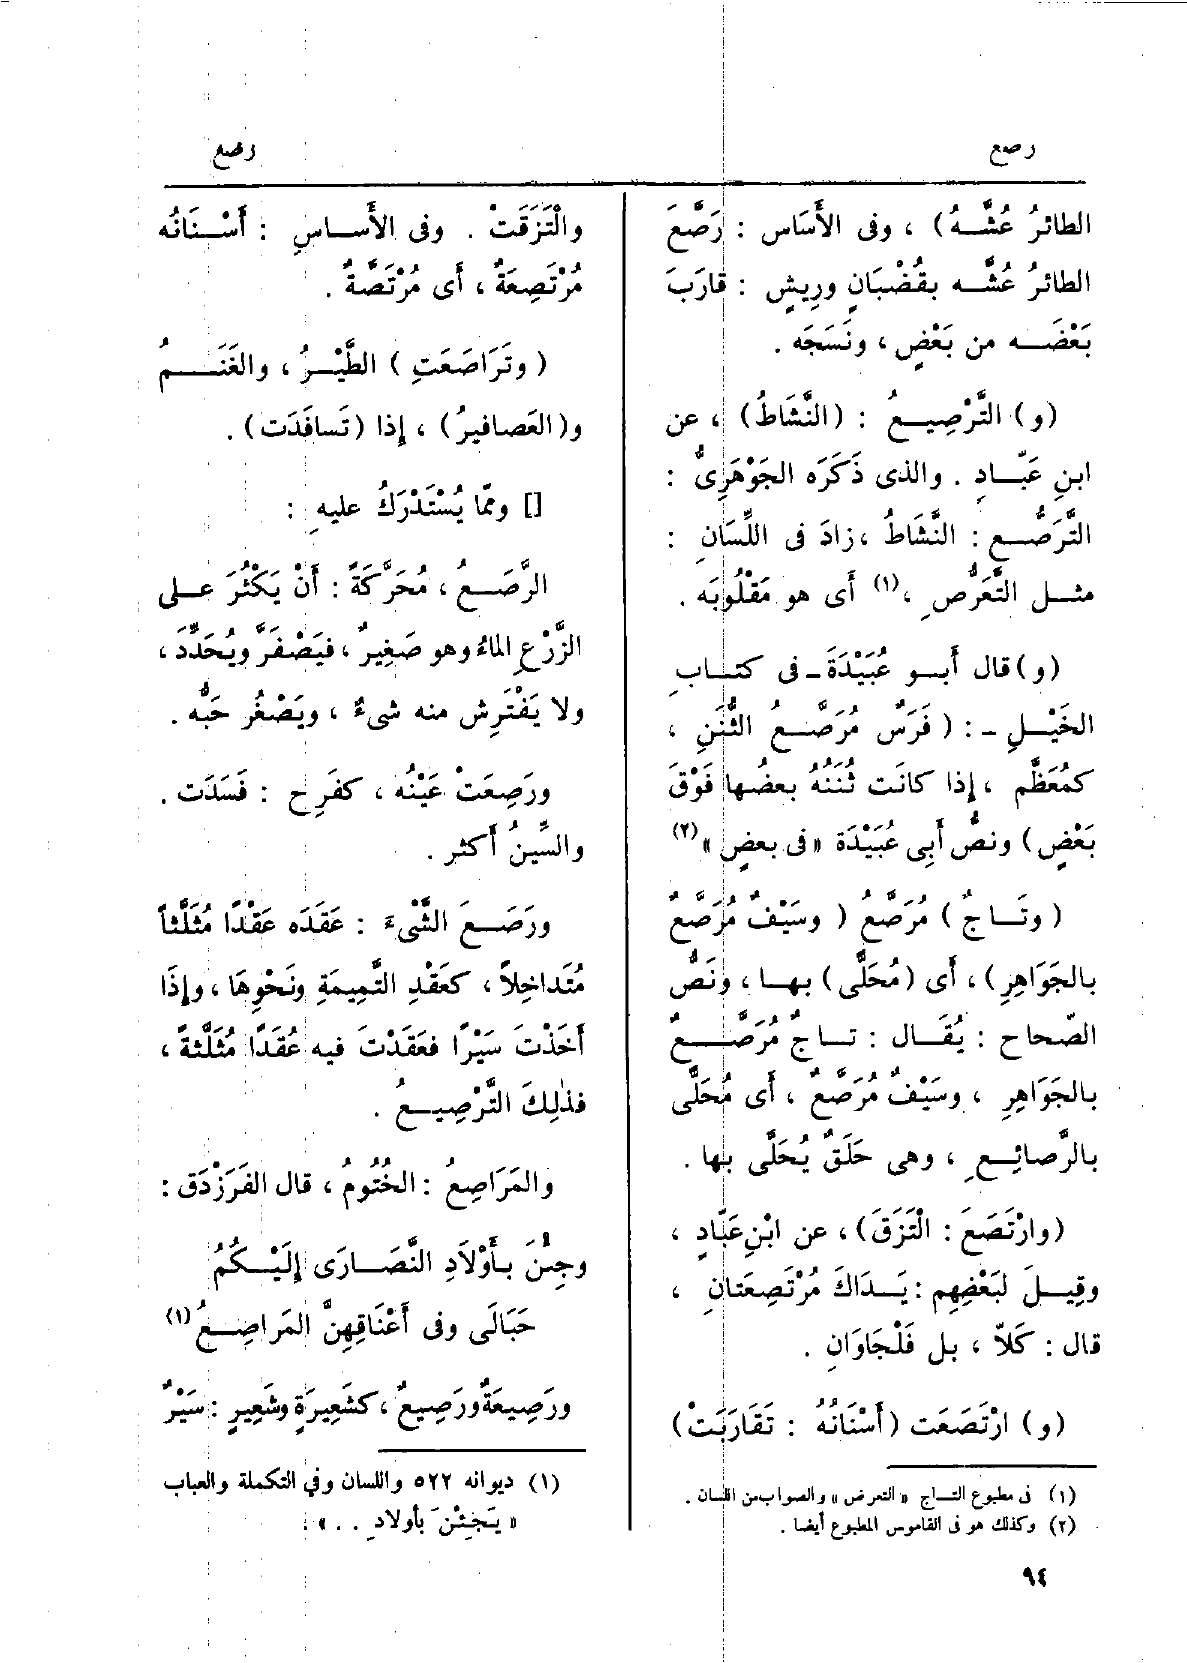 رصع
رصع
الطائرُ عُشَّهُ) ، وفى الأَسَاس : رَصَّعَ
الطائرُ عُشَّه بقُضْبَانٍ ورِيشٍ : قارَبَ
بَعْضَه من بَعْضٍ ، ونَسَجَه .
(و) التَّرْصِيعُ : (النَّشَاطُ) ، عن
ابنِ عَبّادٍ . والذى ذَكَرَه الجَوْهَرِىُّ :
التَّرَصُّعِ : النَّشَاطُ ، زادَ فى اللِّسَانِ :
مثل التَّعَرُّصِ ،(١) أَى هو مَقْلُوبَه .
(و) قال أَبو عُبَيْدَةَ - فى كتابِ
الخَيْلِ - : ( فَرَسٌ مُرَصَّعُ الثُّنَنِ ،
كمُعَظَّم ، إِذا كانَت ثُنَنُهُ بعضُها فَوْقَ
بَعْضٍ) ونصُّ أَبِى عُبَيْدَة « فى بعضٍ »(٢)
( وتَاجٌ ) مُرَصَّعُ ( وسَيْفٌ مُرَصَّعٌ
بالجَوَاهِرِ) ، أَى (مُحَلًّى) بها ، ونَصُّ
الصّحاح : يُقَال : تاجٌ مُرَصَّعٌ
بالجَوَاهِرِ ، وسَيْفٌ مُرَصَّعٌ ، أَى مُحَلًّى
بالرَّصائِعِ ، وهى حَلَقٌ يُحَلَّى بها .
(وارْتَصَعَ : الْتَزَقَ) ، عن ابْنِ عَبّادٍ ،
وقِيلَ لبَعْضِهِم : يَدَاكَ مُرْتَصِعَتانِ ،
قال : كَلاّ ، بل فَلْجَاوَانِ .
(و) ارْتَصَعَت (أَسْنَانُهُ : تَقَارَبَتْ)
(١) فى مطبوع التاج « التعرض » والصواب من اللسان .
(٢) وكذلك هو فى القاموس المطبوع أيضا .
والْتَزَقَتْ . وفى الأَسَاسِ : أَسْنَانُه
مُرْتَصِعَةٌ ، أَى مُرْتَصَّةٌ .
( وتَرَاصَعَتِ ) الطَّيْرُ ، والغَنَمُ
و(العَصافيرُ) ، إِذا (تَسافَدَت) .
[] وممّا يُسْتَدْرَكُ عليهِ :
الرَّصَعُ ، مُحَرَّكَةً : أَنْ يَكْثُرَ على
الزَّرْعِ الماءُ وهو صَغِيرٌ ، فيَصْفَرَّ ويُحَدِّدَ ،
ولا يَفْتَرِش منه شىءٌ ، ويَصْغُر حَبُّه .
ورَصِعَتْ عَيْنُه ، كفَرِح : فَسَدَت .
والسِّينُ أَكثر .
ورَصَعَ الشَّىْءَ : عَقَدَه عَقْدًا مُثَلَّثاً
مُتَداخِلاً ، كعَقْدِ التَّمِيمَةِ ونَحْوِهَا ، وإِذَا
أَخَذْتَ سَيْرًا فعَقَدْتَ فيه عُقَدًا مُثَلَّثةً ،
فذٰلِكَ التَّرْصِيعُ .
والمَرَاصِعُ : الخُتُومُ ، قال الفَرَزْدَق :
وجِئْنَ بأَوْلَادِ النَّصَارَى إِلَيْكُمُ
حَبَالَى وفى أَعْنَاقِهِنَّ المَراصِعُ(١)
ورَصِيعَةٌ ورَصِيعٌ ، كشَعِيرَةٍ وشَعِيرٍ : سَيْرٌ
(١) ديوانه ٥٢٢ واللسان وفي التكملة والعباب
« يَجِئْنَ بأولادِ . . » .
٩٤